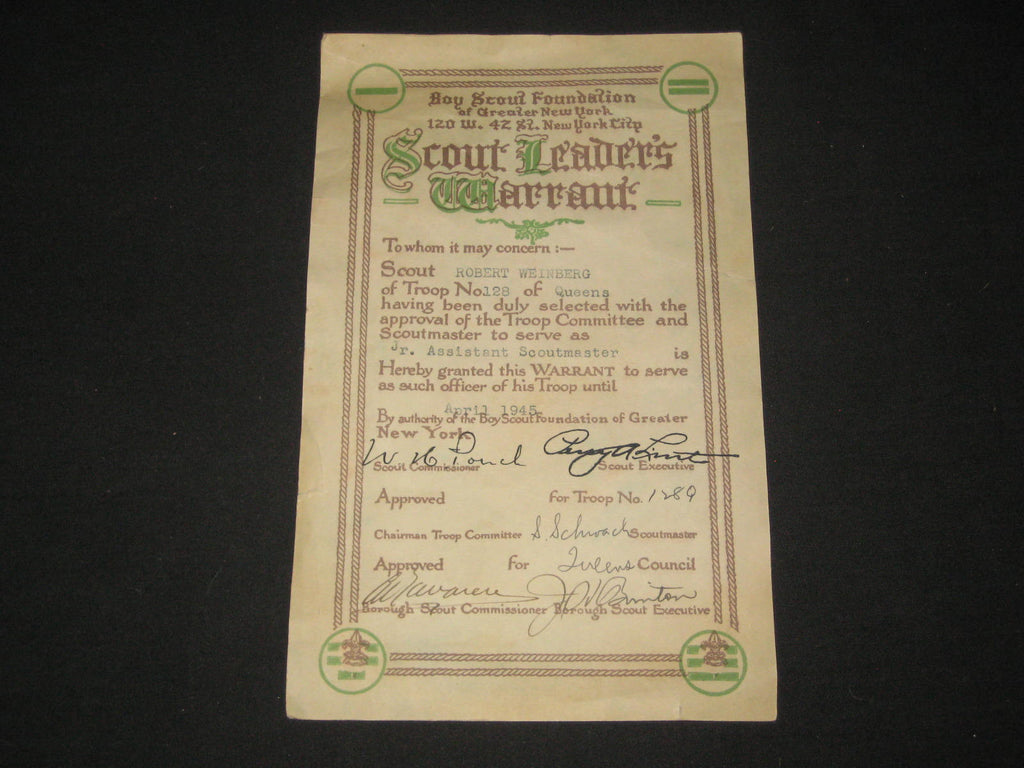 Boy Scout Foundation
of Greater New York
120 W. 42 St. New York City
Scout Leader's
Warrant
To whom it may concern :—
Scout ROBERT WEINBERG
of Troop No.128 of Queens
having been duly selected with the
approval of the Troop Committee and
Scoutmaster to serve as
Jr. Assistant Scoutmaster is
Hereby granted this WARRANT to serve
as such officer of his Troop until
April 1945
By authority of the Boy Scout Foundation of Greater
New York
Scout Commissioner Scout Executive
Approved for Troop No. 128Q
Chairman Troop Committee S. Schwach Scoutmaster
Approved for Queens Council
Borough Scout Commissioner Borough Scout Executive